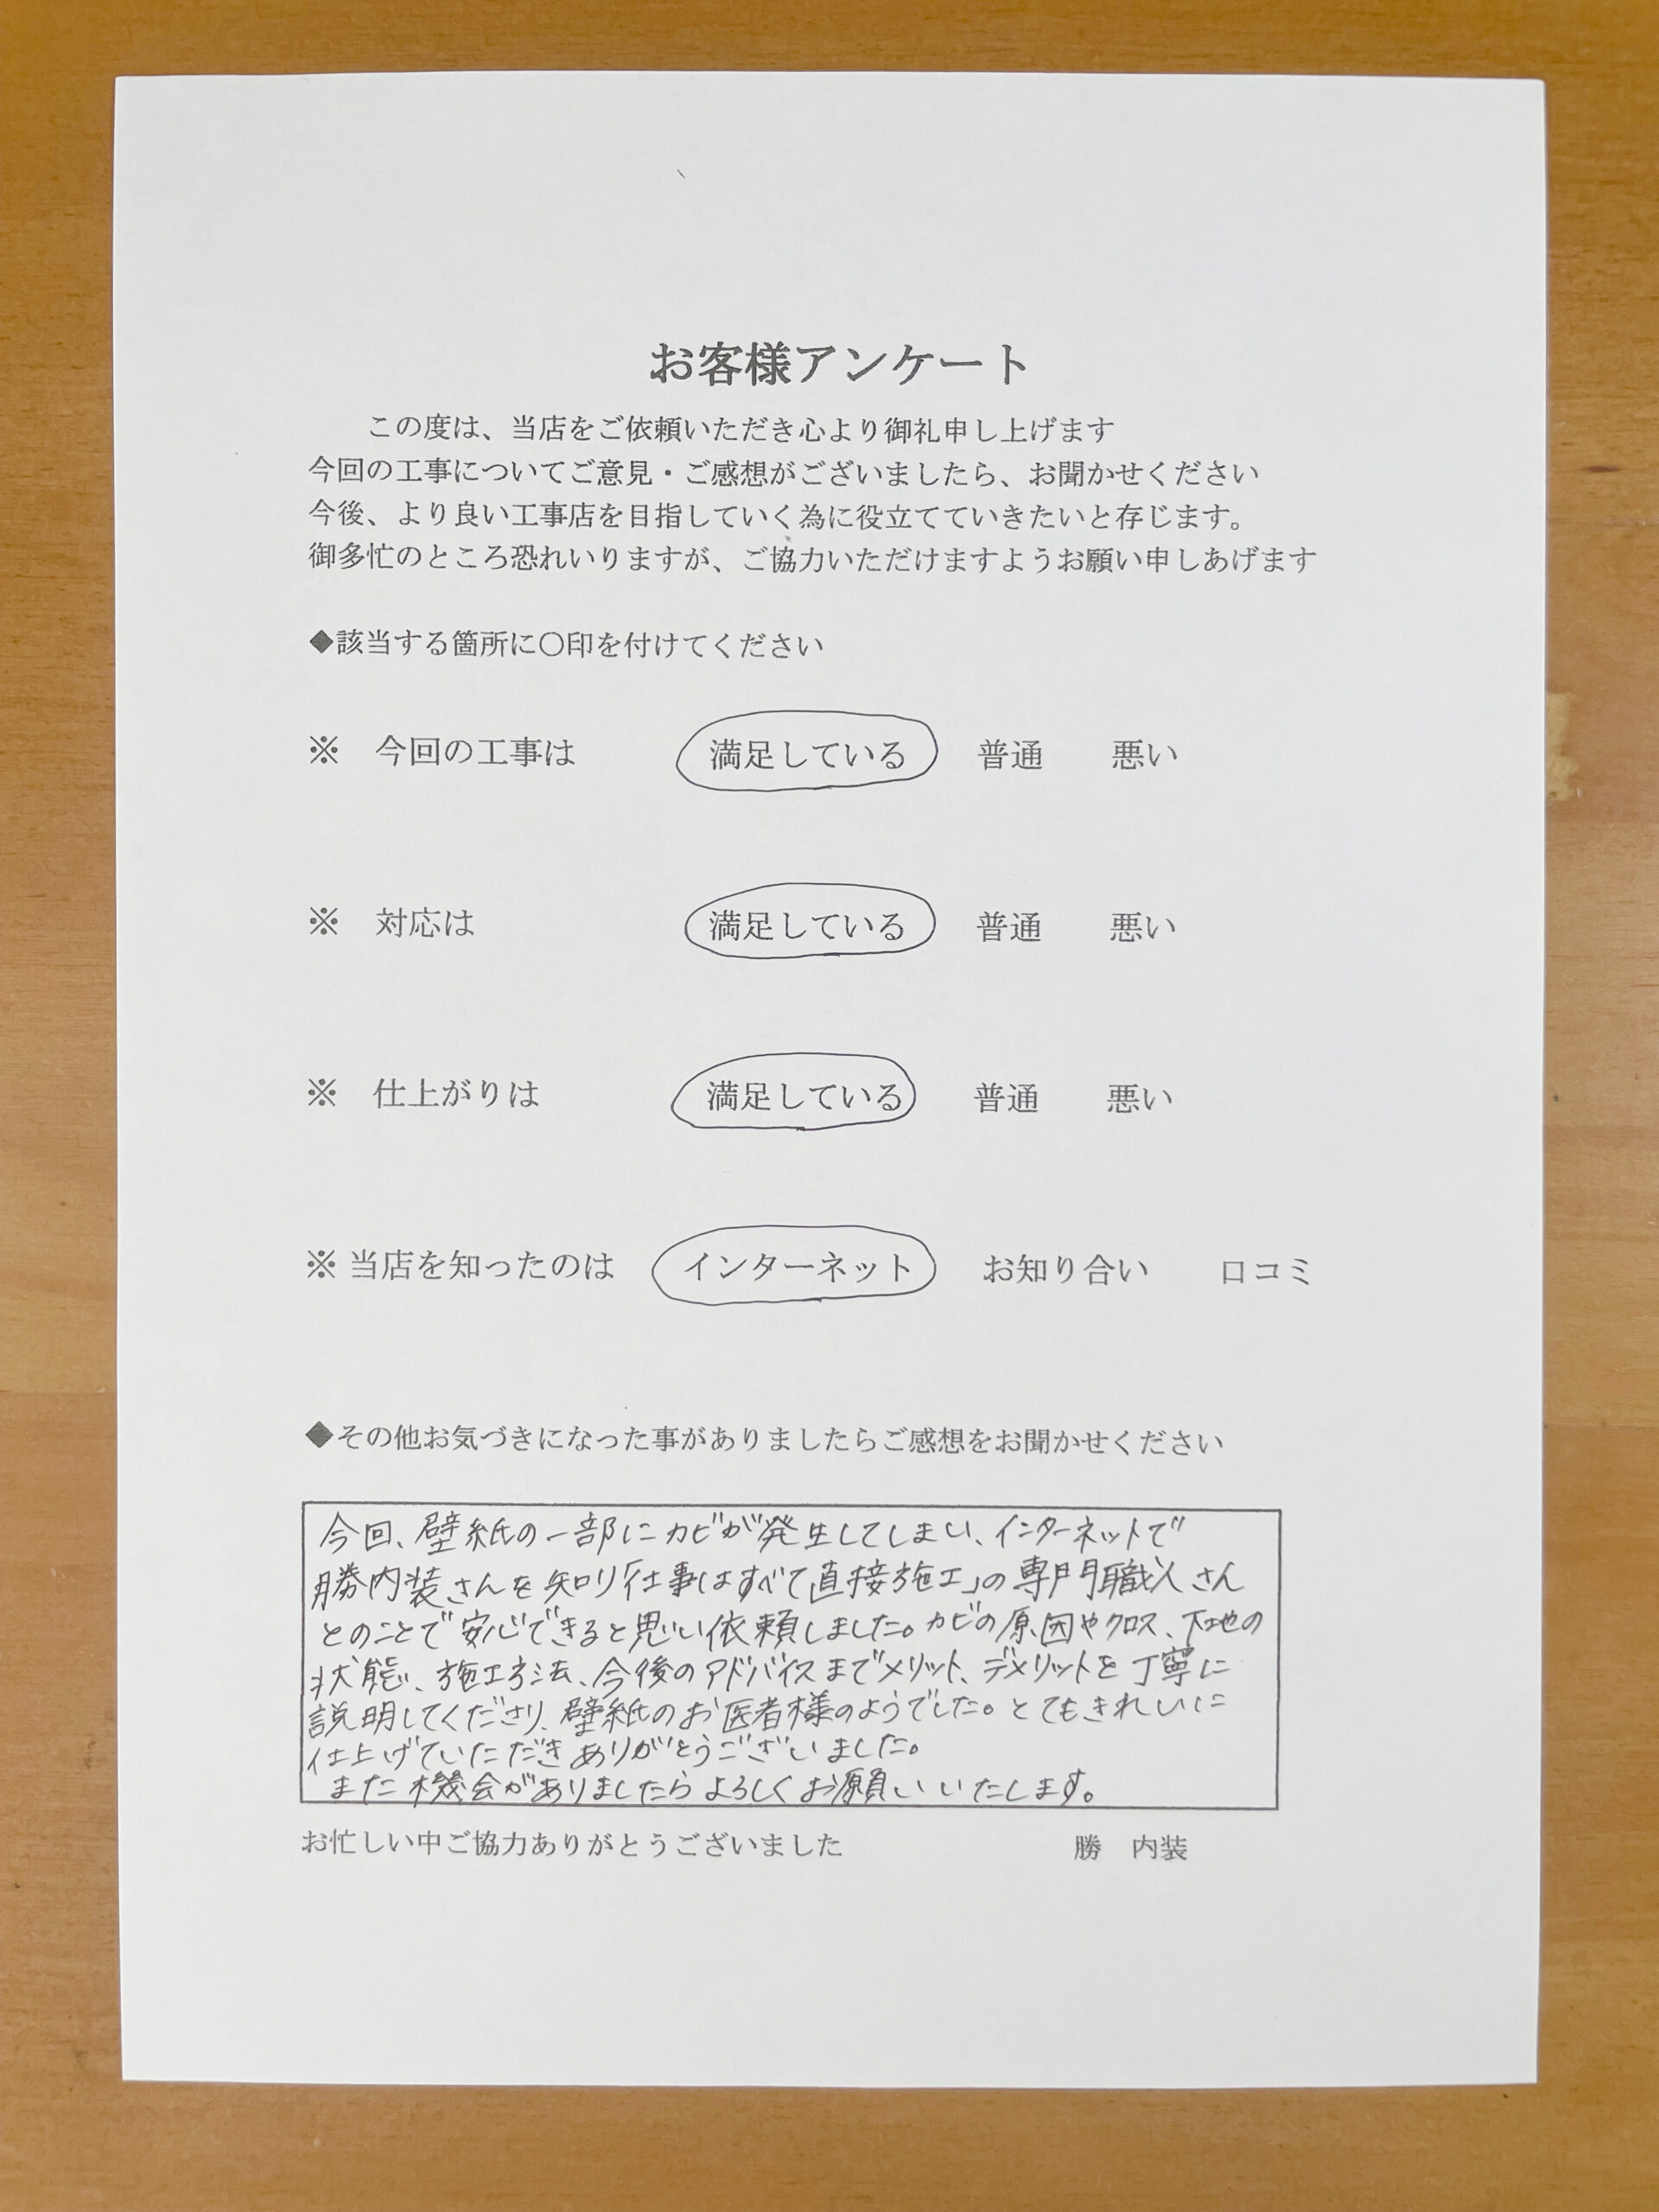 お客様アンケート
この度は、当店をご依頼いただき心より御礼申し上げます
今回の工事についてご意見・ご感想がございましたら、お聞かせください
今後、より良い工事店を目指していく為に役立てていきたいと存じます。
御多忙のところ恐れいりますが、ご協力いただけますようお願い申しあげます
◆該当する箇所に〇印を付けてください
※ 今回の工事は 満足している 普通 悪い
※ 対応は 満足している 普通 悪い
※ 仕上がりは 満足している 普通 悪い
※ 当店を知ったのは インターネット お知り合い 口コミ
◆その他お気づきになった事がありましたらご感想をお聞かせください
今回、壁紙の一部にカビが発生してしまい、インターネットで
勝内装さんを知り「仕事はすべて直接施工」の専門職人さん
とのことで安心できると思い依頼しました。カビの原因やクロス、下地の
状態、施工方法、今後のアドバイスまでメリット、デメリットを丁寧に
説明してくださり、壁紙のお医者様のようでした。とてもきれいに
仕上げていただきありがとうございました。
また機会がありましたらよろしくお願いいたします。
お忙しい中ご協力ありがとうございました 勝 内装